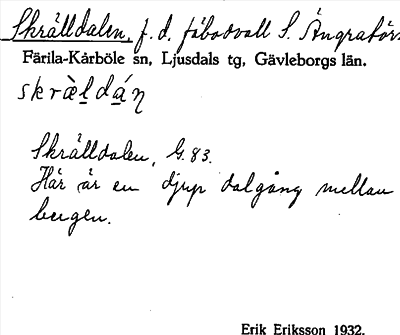 Skrälldalen, f. d. fäbodvall S. Ängratörs
Färila-Kårböle sn, Ljusdals tg, Gävleborgs län.
skræ̀l̲dá̲ṇ
Skrälldalen, G. 83.
Här är en djup dalgång mellan
bergen.
Erik Eriksson 1932.